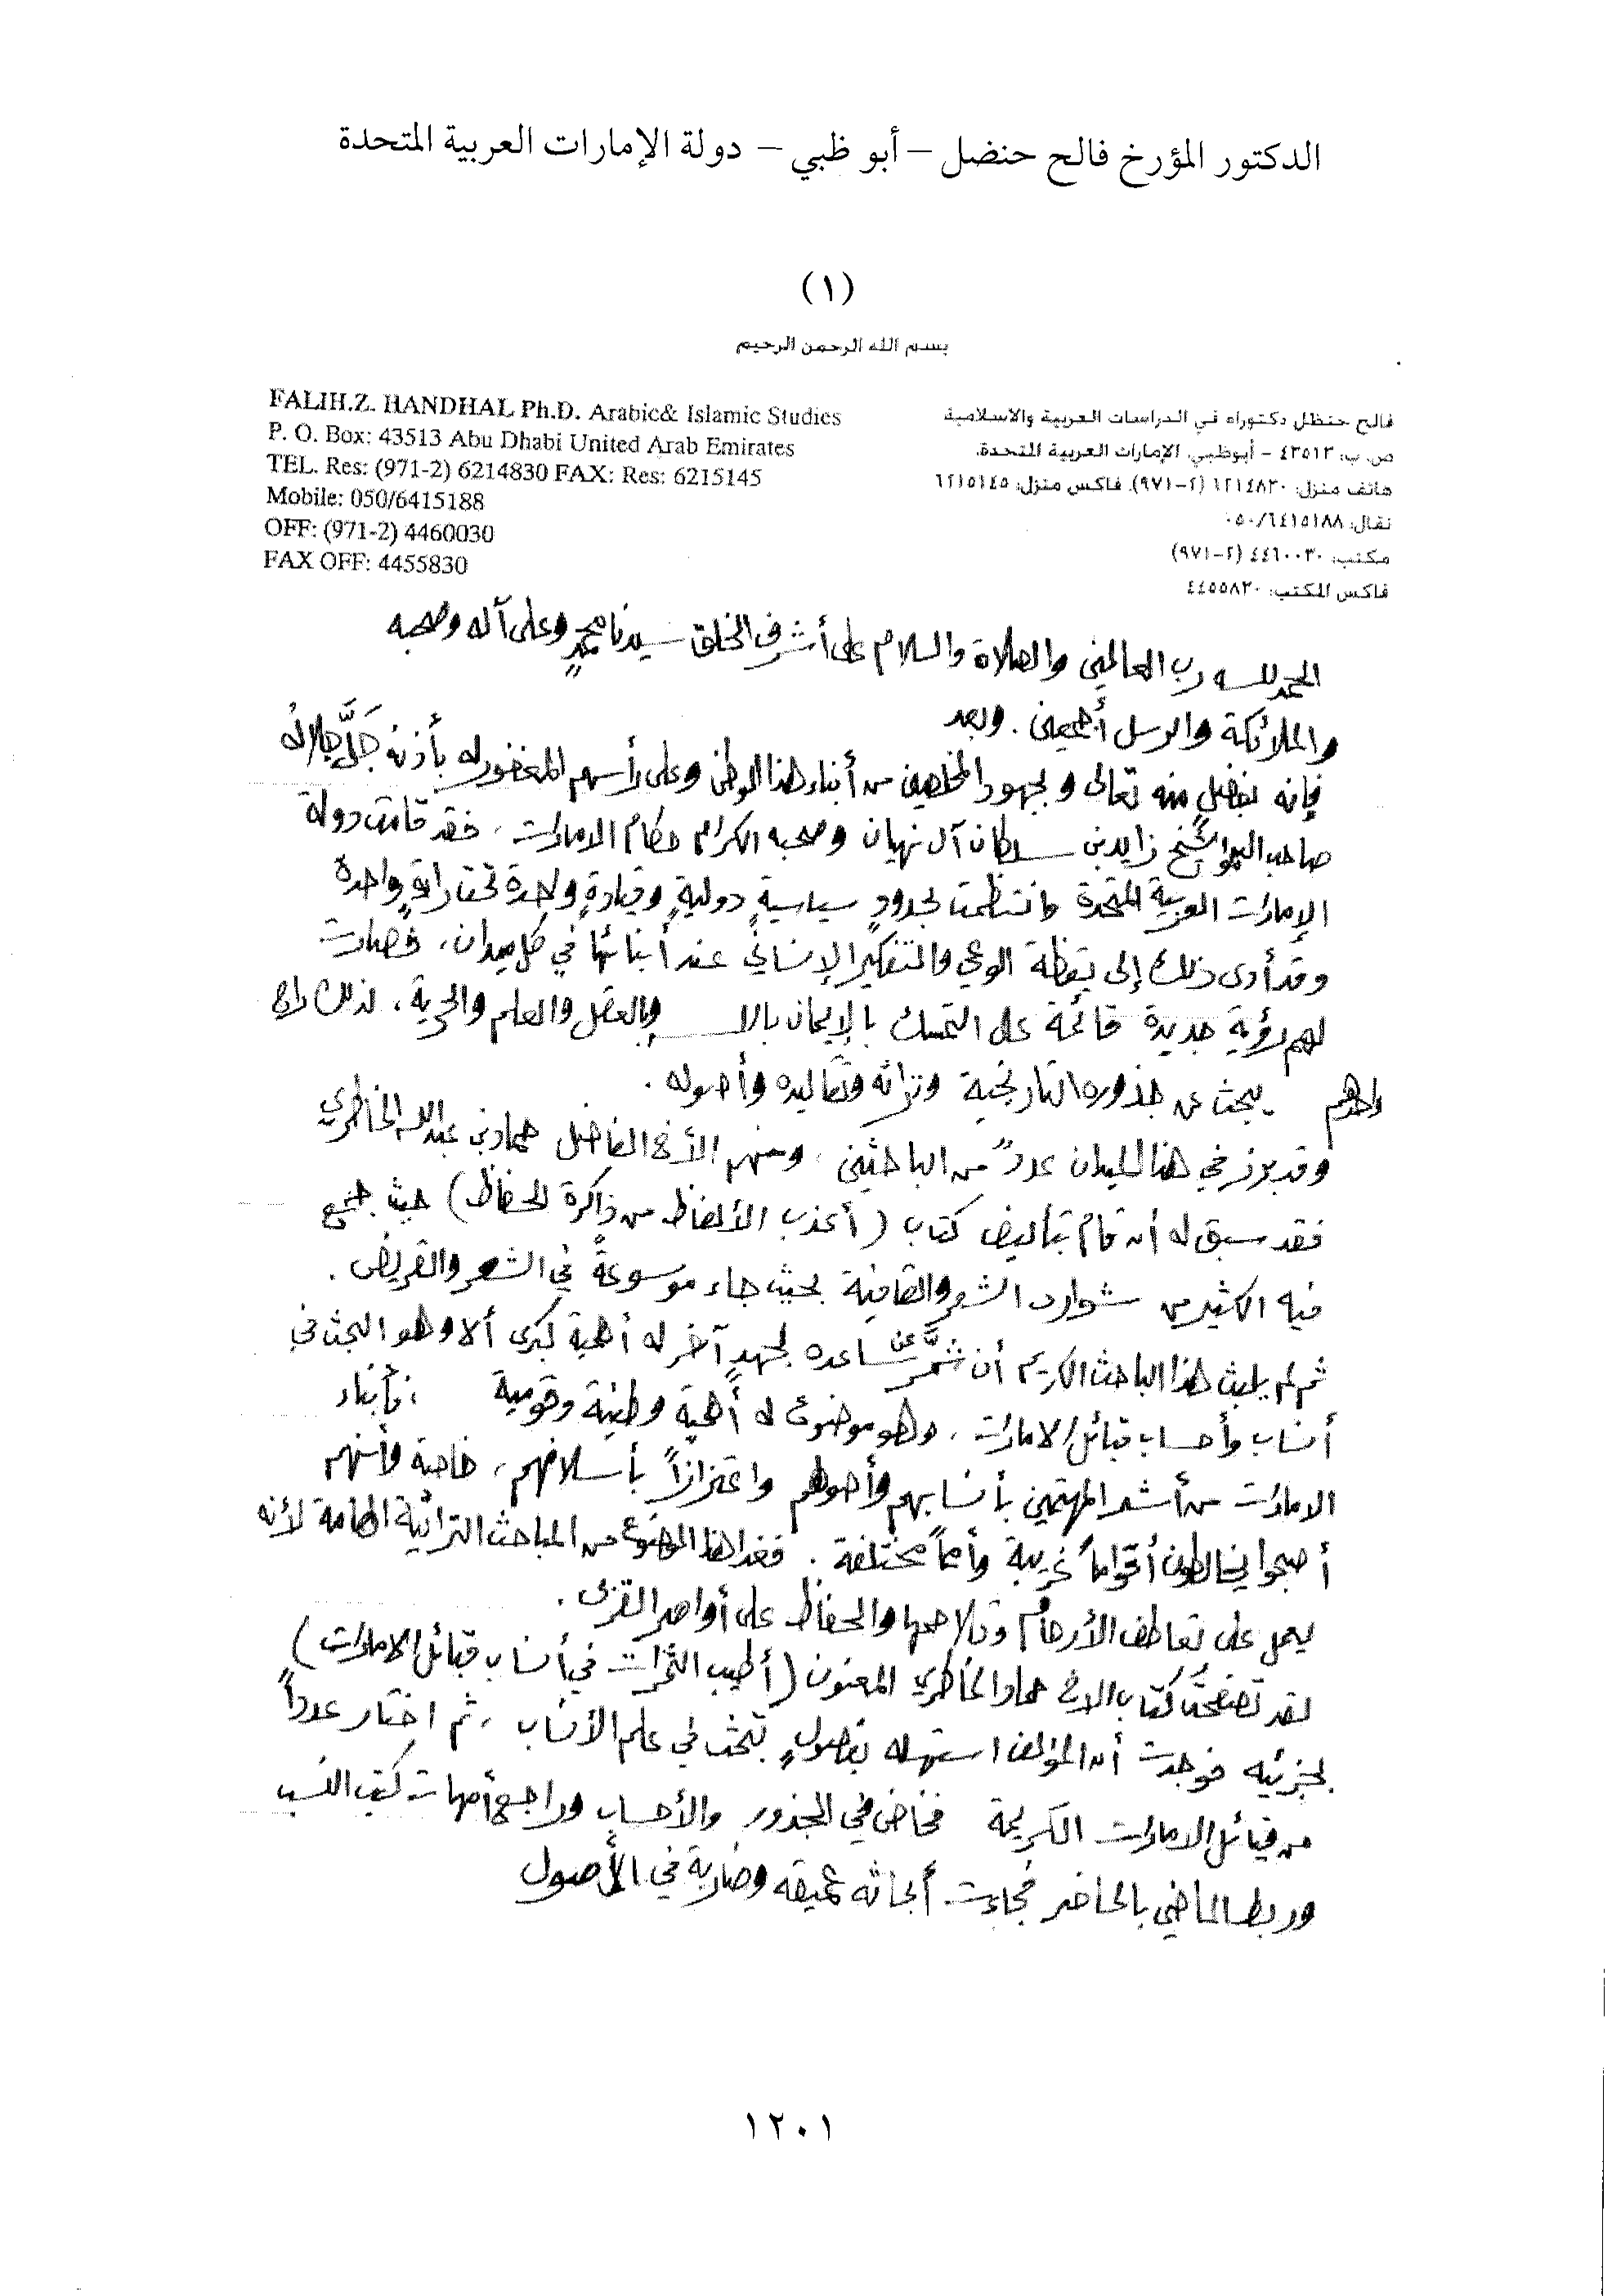 الدكتور المؤرخ فالح حنضل – أبو ظبي – دولة الإمارات العربية المتحدة
(١)
بسم الله الرحمن الرحيم
FALIH.Z. HANDHAL Ph.D. Arabic& Islamic Studies
P. O. Box: 43513 Abu Dhabi United Arab Emirates
TEL. Res: (971-2) 6214830 FAX: Res: 6215145
Mobile: 050/6415188
OFF: (971-2) 4460030
FAX OFF: 4455830
فالح حنظل دكتوراه في الدراسات العربية والاسلامية
ص. ب: ٤٣٥١٣ – أبوظبي. الإمارات العربية المتحدة.
هاتف منزل: ٦٢١٤٨٣٠ (٢–٩٧١). فاكس منزل: ٦٢١٥١٤٥
نقال: ٠٥٠/٦٤١٥١٨٨
مكتب: ٤٤٦٠٠٣٠ (٢–٩٧١)
فاكس المكتب: ٤٤٥٥٨٣٠
الحمد لله رب العالمين والصلاة والسلام على أشرف الخلق سيدنا محمدٍ وعلى آله وصحبه
والملائكة والرسل أجمعين. وبعد
فإنه بفضلٍ منه تعالى وبجهود المخلصين من أبناء هذا الوطن وعلى رأسهم المغفور له بأذنه جَلَّ جلالهُ
صاحب السمو الشيخ زايد بن سلطان آل نهيان وصحبه الكرام حكام الامارات، فقد قامت دولة
الإمارات العربية المتحدة وانتظمت بحدودٍ سياسيةٍ دوليةٍ وقيادةٍ واحدة تحت رايةٍ واحدة
وقد أدى ذلك إلى يقظة الوعي والتفكير الإنساني عند أبنائها في كل ميدان، فصارت
لهم رؤية جديدة قائمة على التمسك بالإيمان بالله وبالعقل والعلم والحرية، لذلك راح
واحدهم يبحث عن جذوره التاريخية وتراثه وتقاليده وأصوله.
وقد برز في هذا الميدان عددٌ من الباحثين، ومنهم الأخ الفاضل حماد بن عبدالله الخاطري
فقد سبق له أن قام بتأليف كتاب (أعذب الألفاظ من ذاكرة الحفاظ) حيث جمع
فيه الكثير من شوارد الشعر والقافية بحيث جاء موسوعةً في الشعر والقريض.
ثم لم يلبث هذا الباحث الكريم أن شمَّر عن ساعده لجهدٍ آخر له أهمية كبرى ألا وهو البحث في
أنساب وأحساب قبائل الامارات، وهو موضوع له أهمية وطنية وقومية، فأبناء
الامارات من أشد المهتمين بأنسابهم وأصولهم واعتزازاً بأسلافهم، خاصة وأنهم
أصبحوا يخالطون أقواماً غريبة وأمماً مختلفة. فغدا هذا الموضوع من المباحث التراثية الهامة لأنه
يعمل على تعاطف الأرحام وتلاحمها والحفاظ على أواصر القربى.
لقد تصفحتُ كتاب الاخ حماد الخاطري المعنون (أطيب الثمرات في أنساب قبائل الامارات)
بجزئيه فوجدت أن المؤلف استهله بفصولٍ تبحث في علم الأنساب، ثم اختار عدداً
من قبائل الامارات الكريمة فخاض في الجذور والأحساب وراجع أمهات كتب النسب
وربط الماضي بالحاضر فجاءت أبحاثه عميقه وضاربة في الأصول
١٢٠١